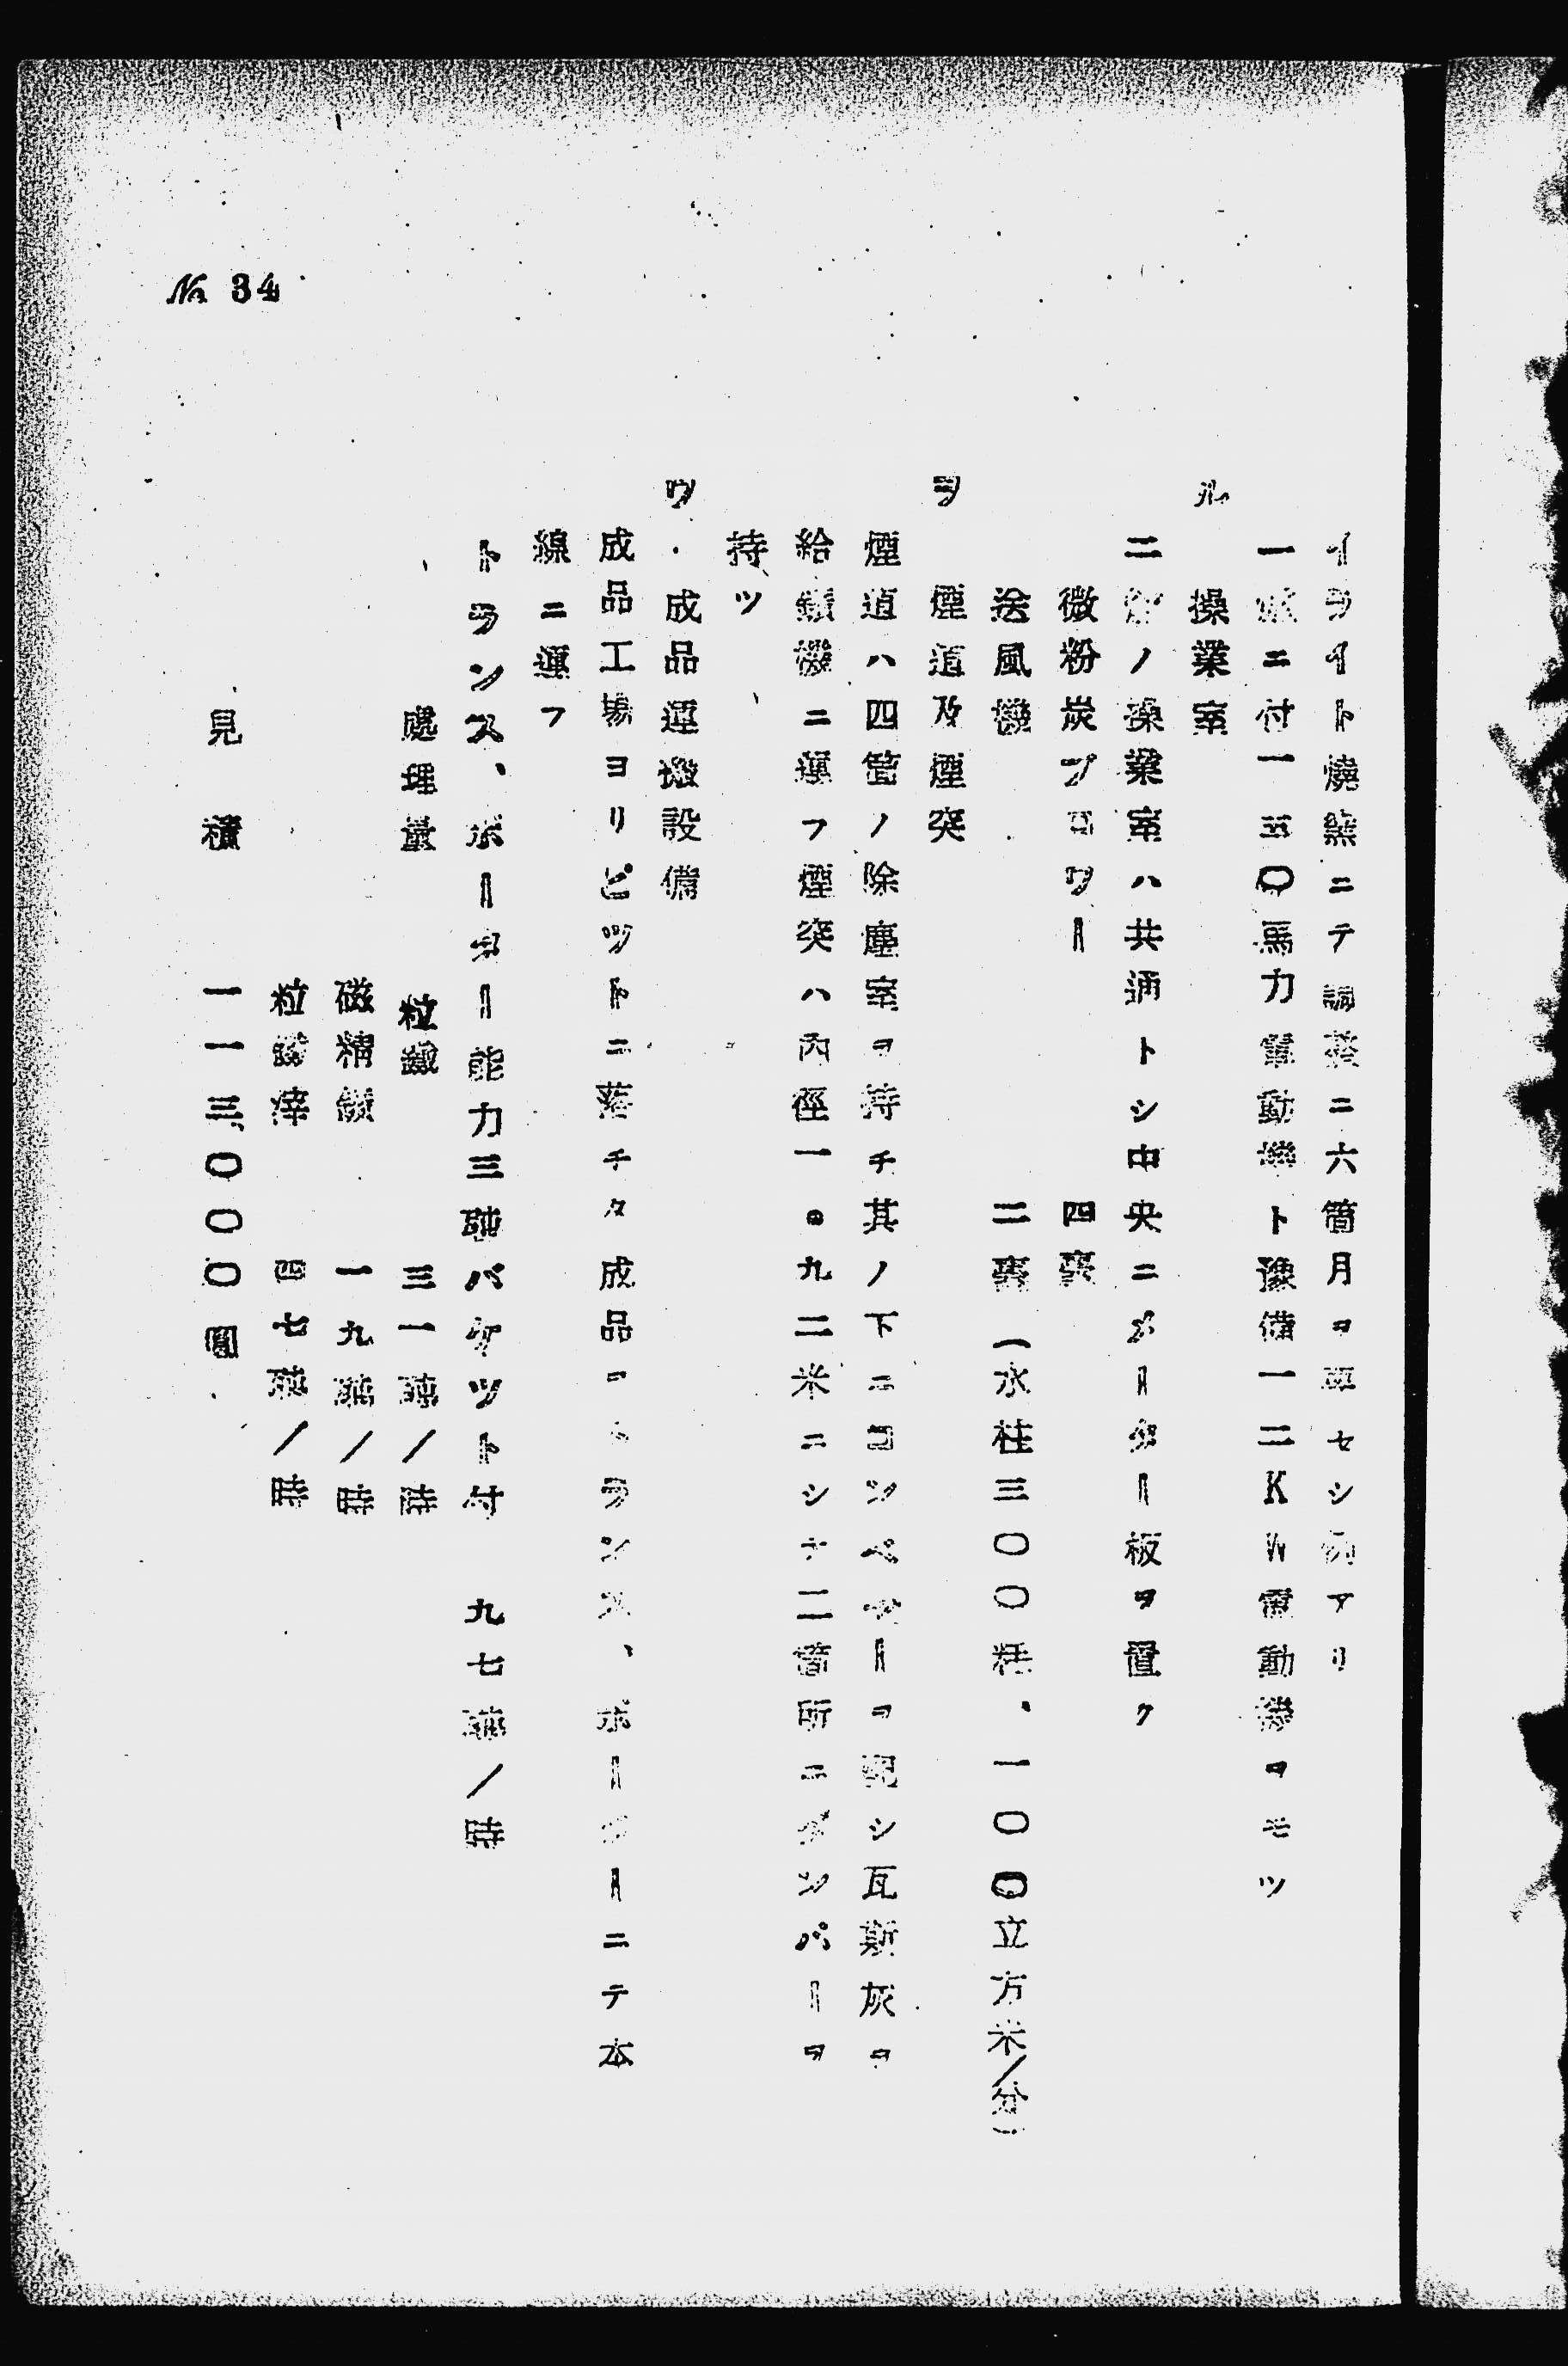 イライト燒窯ニテ調査ニ六箇月ヲ要セシ例アリ
一窯ニ付一五〇馬力電動機ト豫備一二KW電動機ヲモツ
ル 操業室
二窯ノ操業室ハ共通トシ中央ニメーター板ヲ置ク
微粉炭ブロワー 四臺
送風機 二臺(水柱三〇〇粍、一〇〇立方米/分)
ヲ 煙道及煙突
煙道ハ四箇ノ除塵室ヲ持チ其ノ下ニコンベヤーヲ配シ瓦斯灰ヲ
給鑛機ニ運フ煙突ハ內徑一.九二米ニシテ二箇所ニダンパーヲ
持ツ
ワ.成品運搬設備
成品工場ヨリピツトニ落チタ成品ヲトランス、ポーターニテ本
線ニ運フ
トランス、ポーター能力三瓲バケツト付 九七瓲/時
處理量 粒鐵 三一瓲/時
磁精鑛 一九瓲/時
粒鐵滓 四七瓲/時
見積 一一三、〇〇〇圓
№ 34